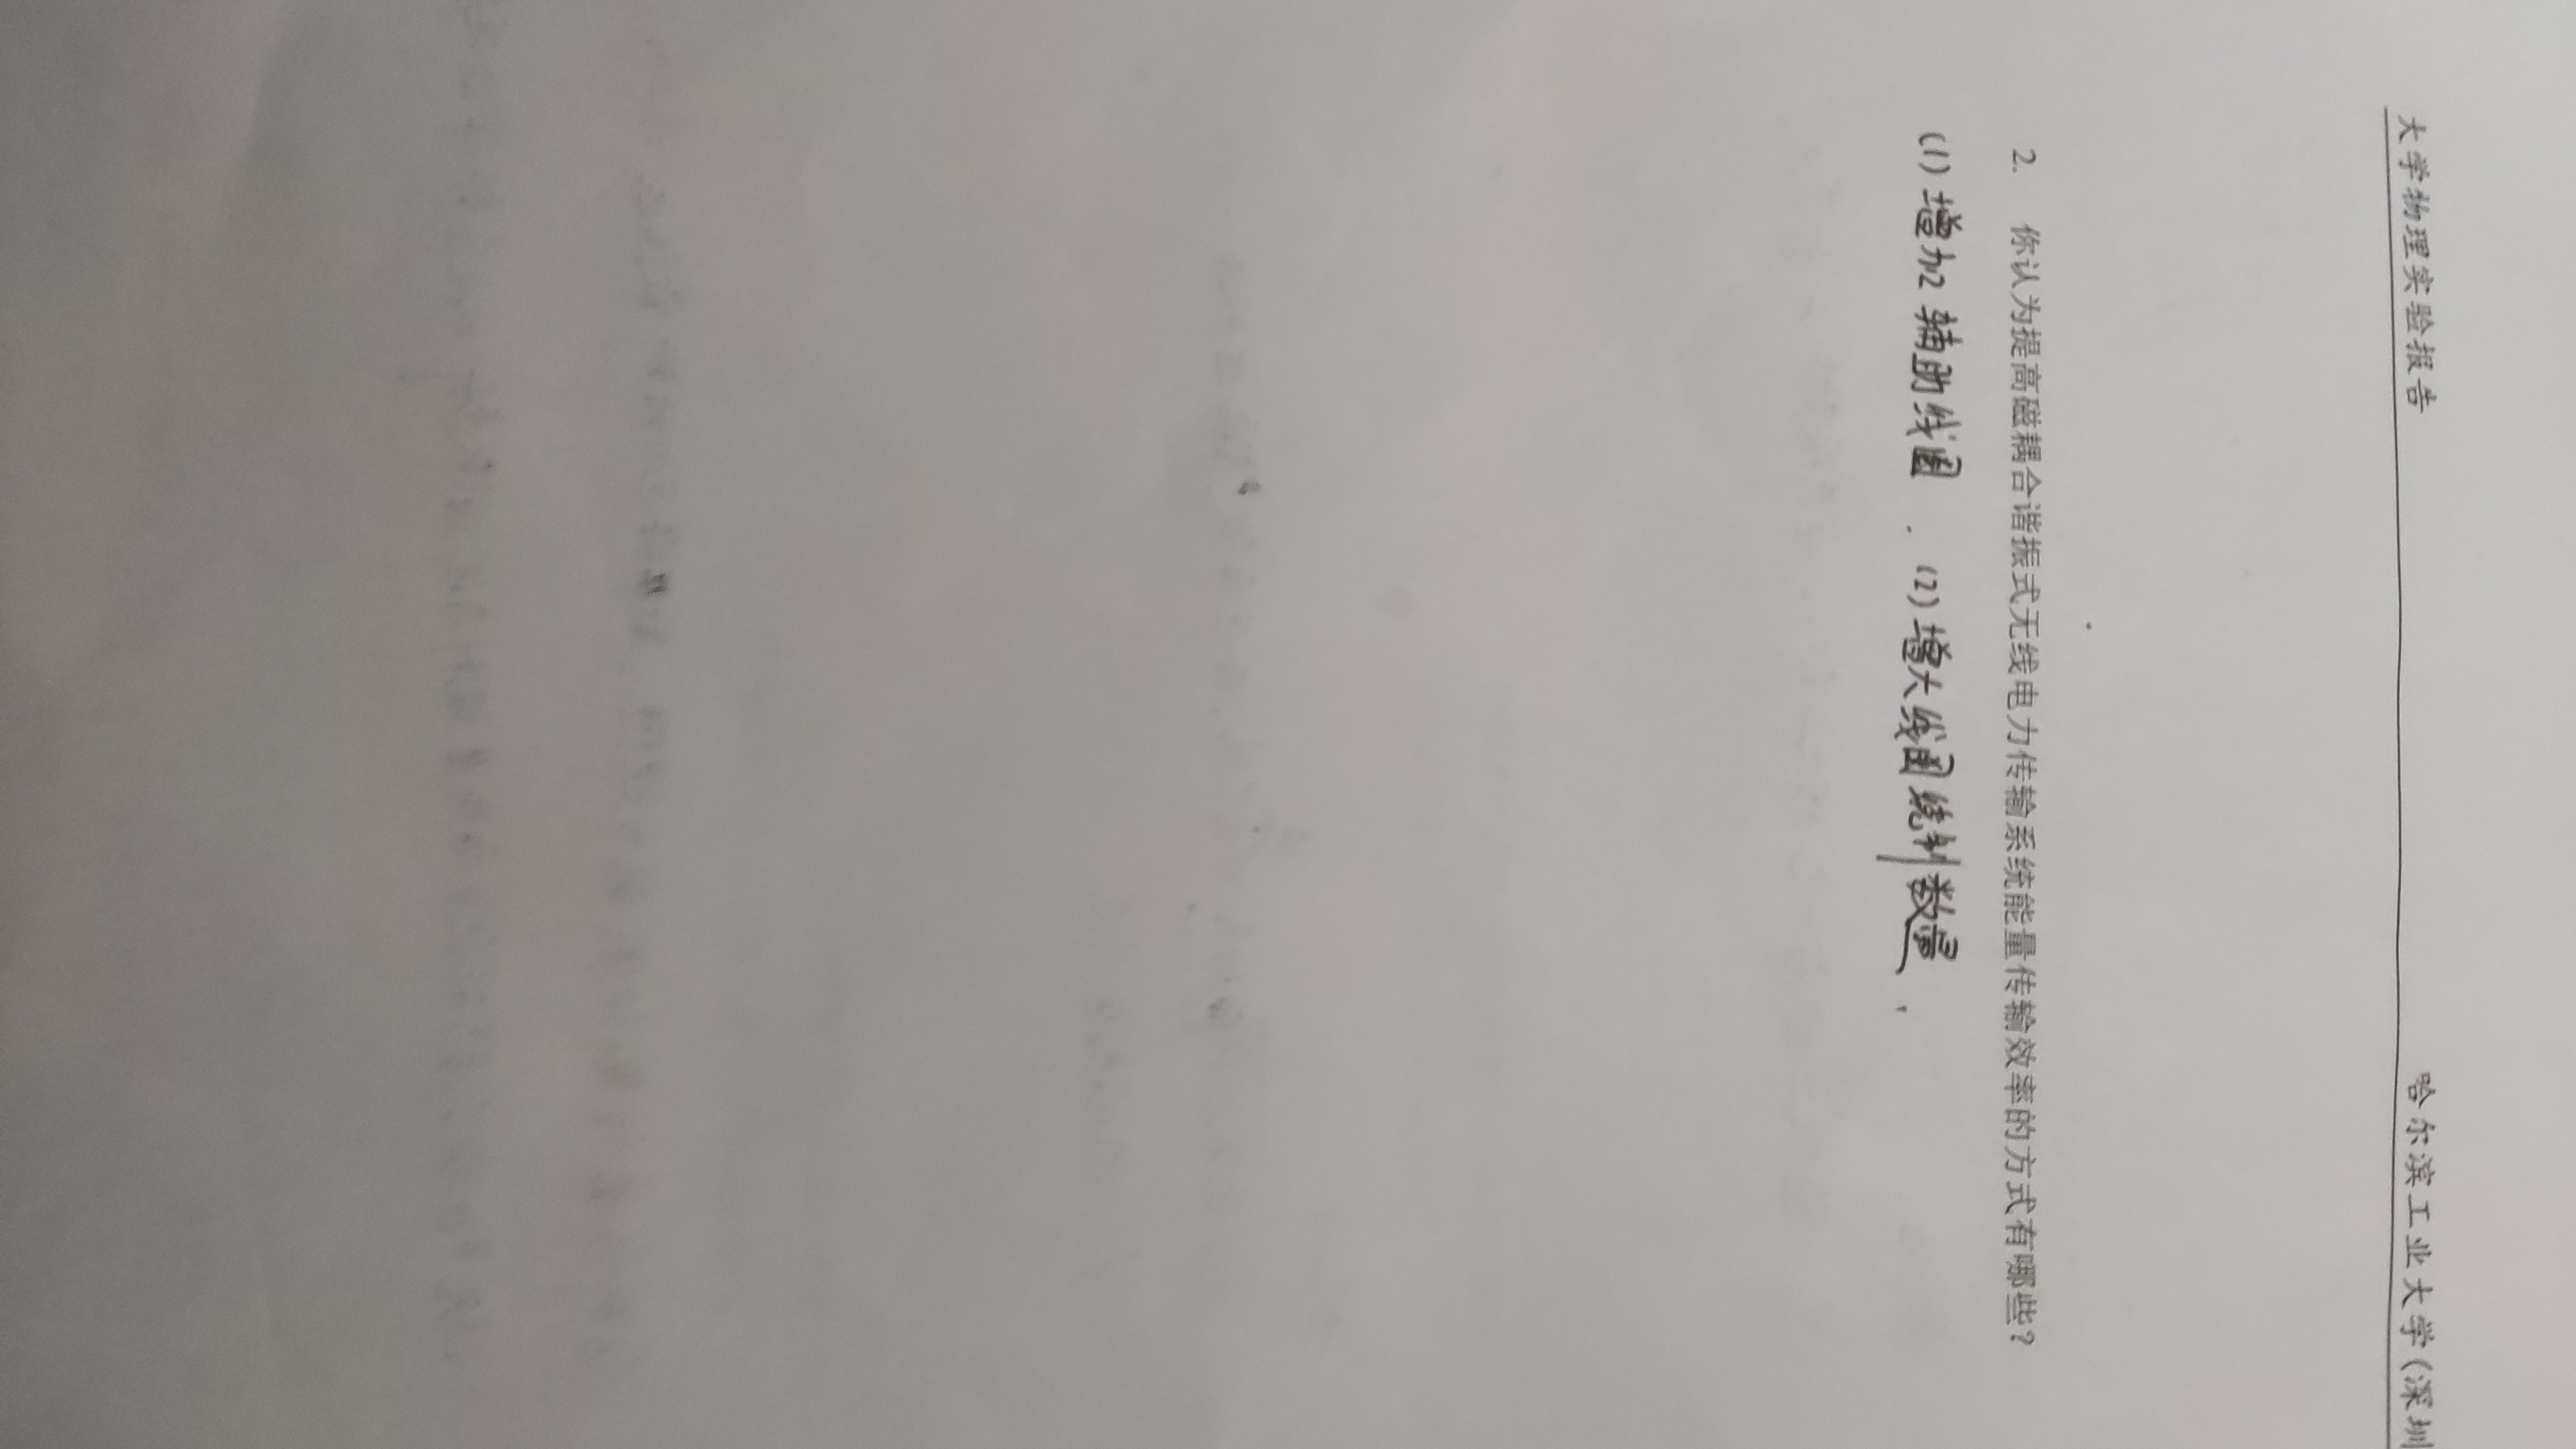 大学物理实验报告 哈尔滨工业大学(深圳
2. 你认为提高磁耦合谐振式无线电力传输系统能量传输效率的方式有哪些?
(1) 增加2 辅助线圈. (2) 增大线圈绕制数量.